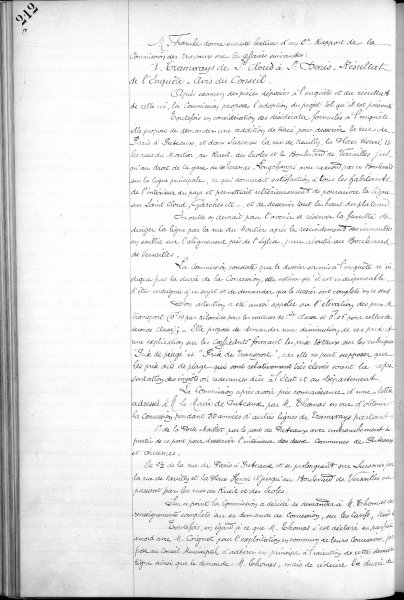 212
M. Franke donne ensuite lecture d'un 2e Rapport de la
Commission des travaux sur les affaires suivantes :
1. Tramways de St Cloud à St Denis - Résultat
de l'Enquête - Avis du Conseil.
Après examen des pièces déposées à l'enquête et du résultat
de celle-ci, la Commission propose l'adoption du projet tel qu'il est présenté.
Toutefois en considération des desiderata formulés à l'enquête
elle propose de demander une addition de tracé pour desservir la rue de
Paris à Puteaux et dans Suresnes la rue de Neuilly, la Place Henri IV
les rues du Moutier, de Rueil, des Ecoles et le Boulevard de Versailles jusqu'
au droit de la gare de Suresnes Longchamps avec raccord par ce Boulevard
sur la ligne principale, ce qui donnerait satisfaction à tous les habitants
de l'intérieur du pays et permettrait ultérieurement de poursuivre la ligne
sur Saint Cloud, Garches etc., et de desservir tout le haut du plateau.
En outre on devrait pour l'avenir se réserver la faculté de
diriger la ligne par la rue du Moutier après le rescindement des immeubles
en saillie sur l'alignement près de l'église, pour aboutir au Boulevard
de Versailles.
La Commission constate que le dossier soumis à l'enquête n'indique
pas la durée de la Concession, elle estime qu'il est indispensable
d'être renseigné à ce sujet et de demander que le dossier soit complété en ce sens.
Son attention a été aussi appelée sur l'élévation des prix de
transport (0f10 par kilomètre pour les voitures de 1ère classe et 0f05 pour celles de
seconde classe) ; - Elle propose de demander une diminution de ces prix et
une explication sur les coefficients formant les prix totaux sur les rubriques
"Prix de péage" et "Prix de Transport", car elle ne peut supposer que
les prix dits de péage qui sont relativement très élevés soient la représentation
des impôts ou redevances dûs à l'Etat et au Département.
La Commission après avoir pris connaissance d'une lettre
adressée à M. le Maire de Puteaux par M. Thomas en vue d'obtenir
la Concession pendant 50 années d'autres lignes de Tramways partant
1° de la Porte Maillot par le pont de Puteaux avec embranchement à
partir de ce pont pour desservir l'intérieur des deux Communes de Puteaux
et Suresnes.
Et 2° de la rue de Paris à Puteaux et se prolongeant sur Suresnes par
la rue de Neuilly et la Place Henri IV jusqu'au Boulevard de Versailles en
passant par les rues de Rueil et des Ecoles.
Sur ce point la Commission a décidé de demander à M. Thomas des
renseignements complets sur sa demande de Concession, sur les tarifs,
Toutefois, eu égard à ce que M. Thomas s'est déclaré en parfait
accord avec M. Coignet pour l'exploitation en commun de leurs Concessions,
au Conseil Municipal d'adhérer en principe à l'exécution de cette dernière
ligne ainsi que le demande M. Thomas, mais de réduire la durée de